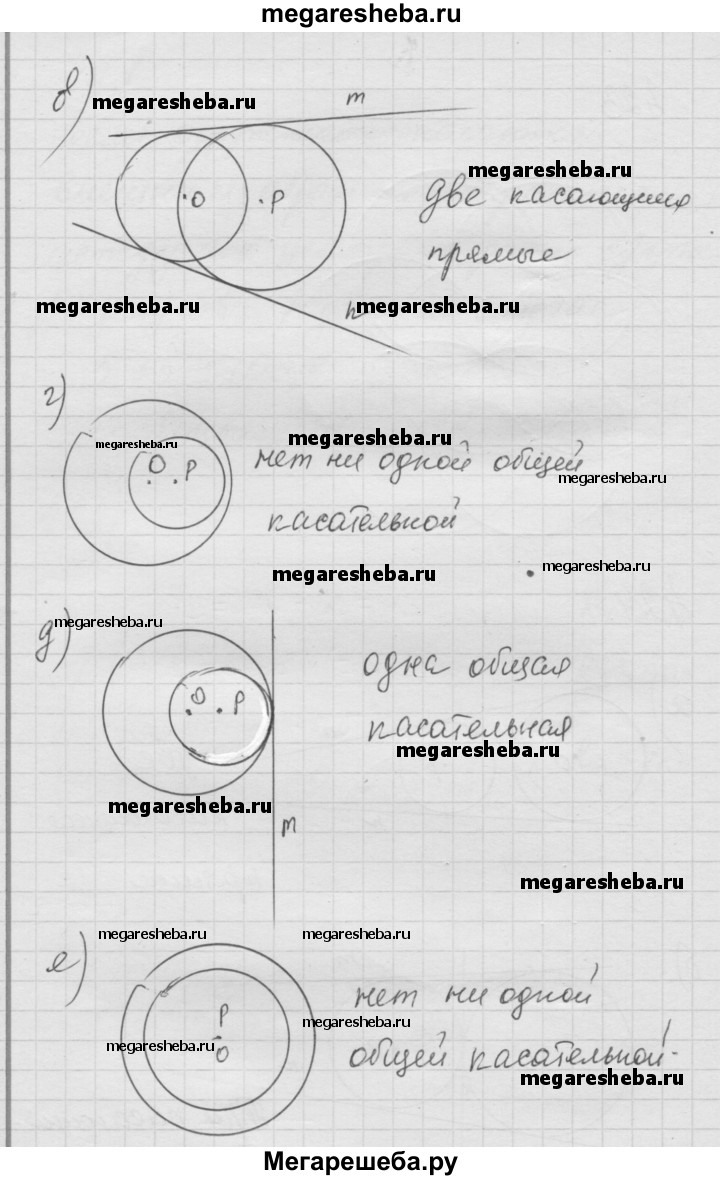 megaresheba.ru
в)
megaresheba.ru
m
megaresheba.ru
O P
две касающиеся
прямые
megaresheba.ru
n
megaresheba.ru
г)
megaresheba.ru
megaresheba.ru
O P
нет ни одной общей
megaresheba.ru
касательной
megaresheba.ru
megaresheba.ru
megaresheba.ru
д)
одна общая
O P
касательная
megaresheba.ru
megaresheba.ru
m
megaresheba.ru
megaresheba.ru
megaresheba.ru
е)
нет ни одной
P
megaresheba.ru
megaresheba.ru
O
общей касательной.
megaresheba.ru
Мегарешеба.ру